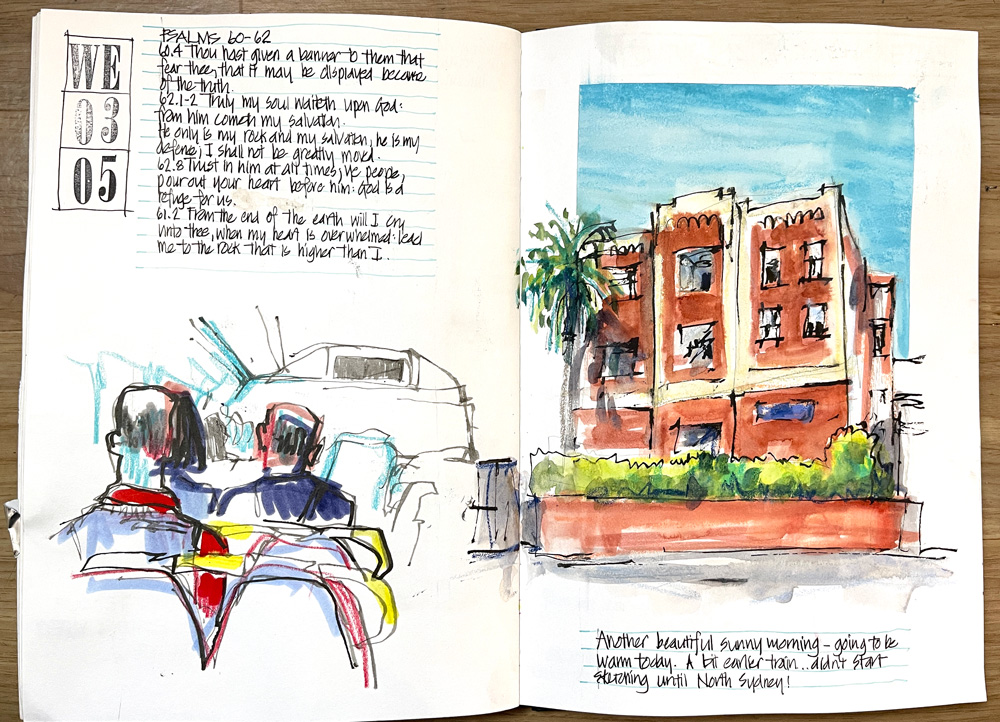 WE
03
05
PSALMS 60-62
60.4 Thou hast given a banner to them that
fear thee, that it may be displayed because
of the truth.
62.1-2 Truly my soul waiteth upon God:
from him cometh my salvation.
He only is my rock and my salvation, he is my
defence; I shall not be greatly moved.
62.8 Trust in him at all times; ye people,
pour out your heart before him: God is a
refuge for us.
61.2 From the end of the earth will I cry
unto thee, when my heart is overwhelmed: lead
me to the rock that is higher than I.
Another beautiful sunny morning - going to be
warm today. A bit earlier train... didn't start
sketching until North Sydney!